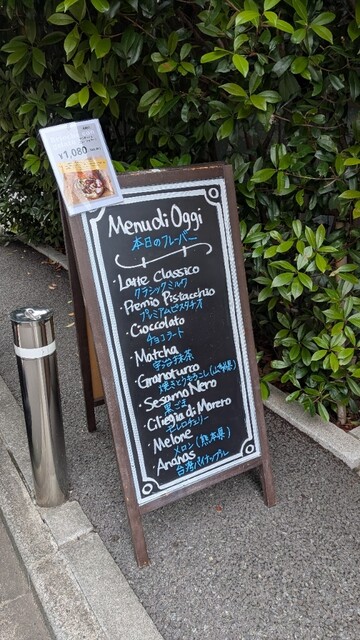 ¥1,080
Menu di Oggi
本日のフレーバー
・Latte Classico
クラシックミルク
・Premio Pistacchio
プレミアムピスタチオ
・Cioccolato
チョコラート
・Matcha
宇治お抹茶
・Granoturco
焼とうもろこし(山梨県)
・Sesamo Nero
黒ごま
・Ciliegia di Moreto
モレロチェリー
・Melone
メロン(熊本県)
・Ananas
台湾パイナップル